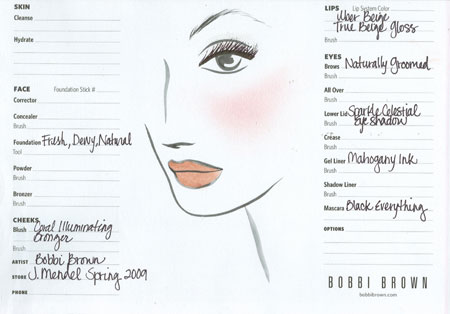 SKIN
Cleanse
Hydrate
FACE Foundation Stick #
Corrector
Concealer
Brush
Foundation Fresh, Dewy, Natural
Tool
Powder
Brush
Bronzer
Brush
CHEEKS
Blush Coral Illuminating
Bronzer
Brush
ARTIST Bobbi Brown
STORE J. Mendel Spring 2009
PHONE
LIPS Lip System Color
Uber Beige
True Beige Gloss
Brush
EYES
Brows Naturally Groomed
Brush
All Over
Brush
Lower Lid Sparkle Celestial
Eye shadow
Brush
Crease
Brush
Gel Liner Mahogany Ink
Brush
Shadow Liner
Brush
Mascara Black Everything
OPTIONS
BOBBI BROWN
bobbibrown.com